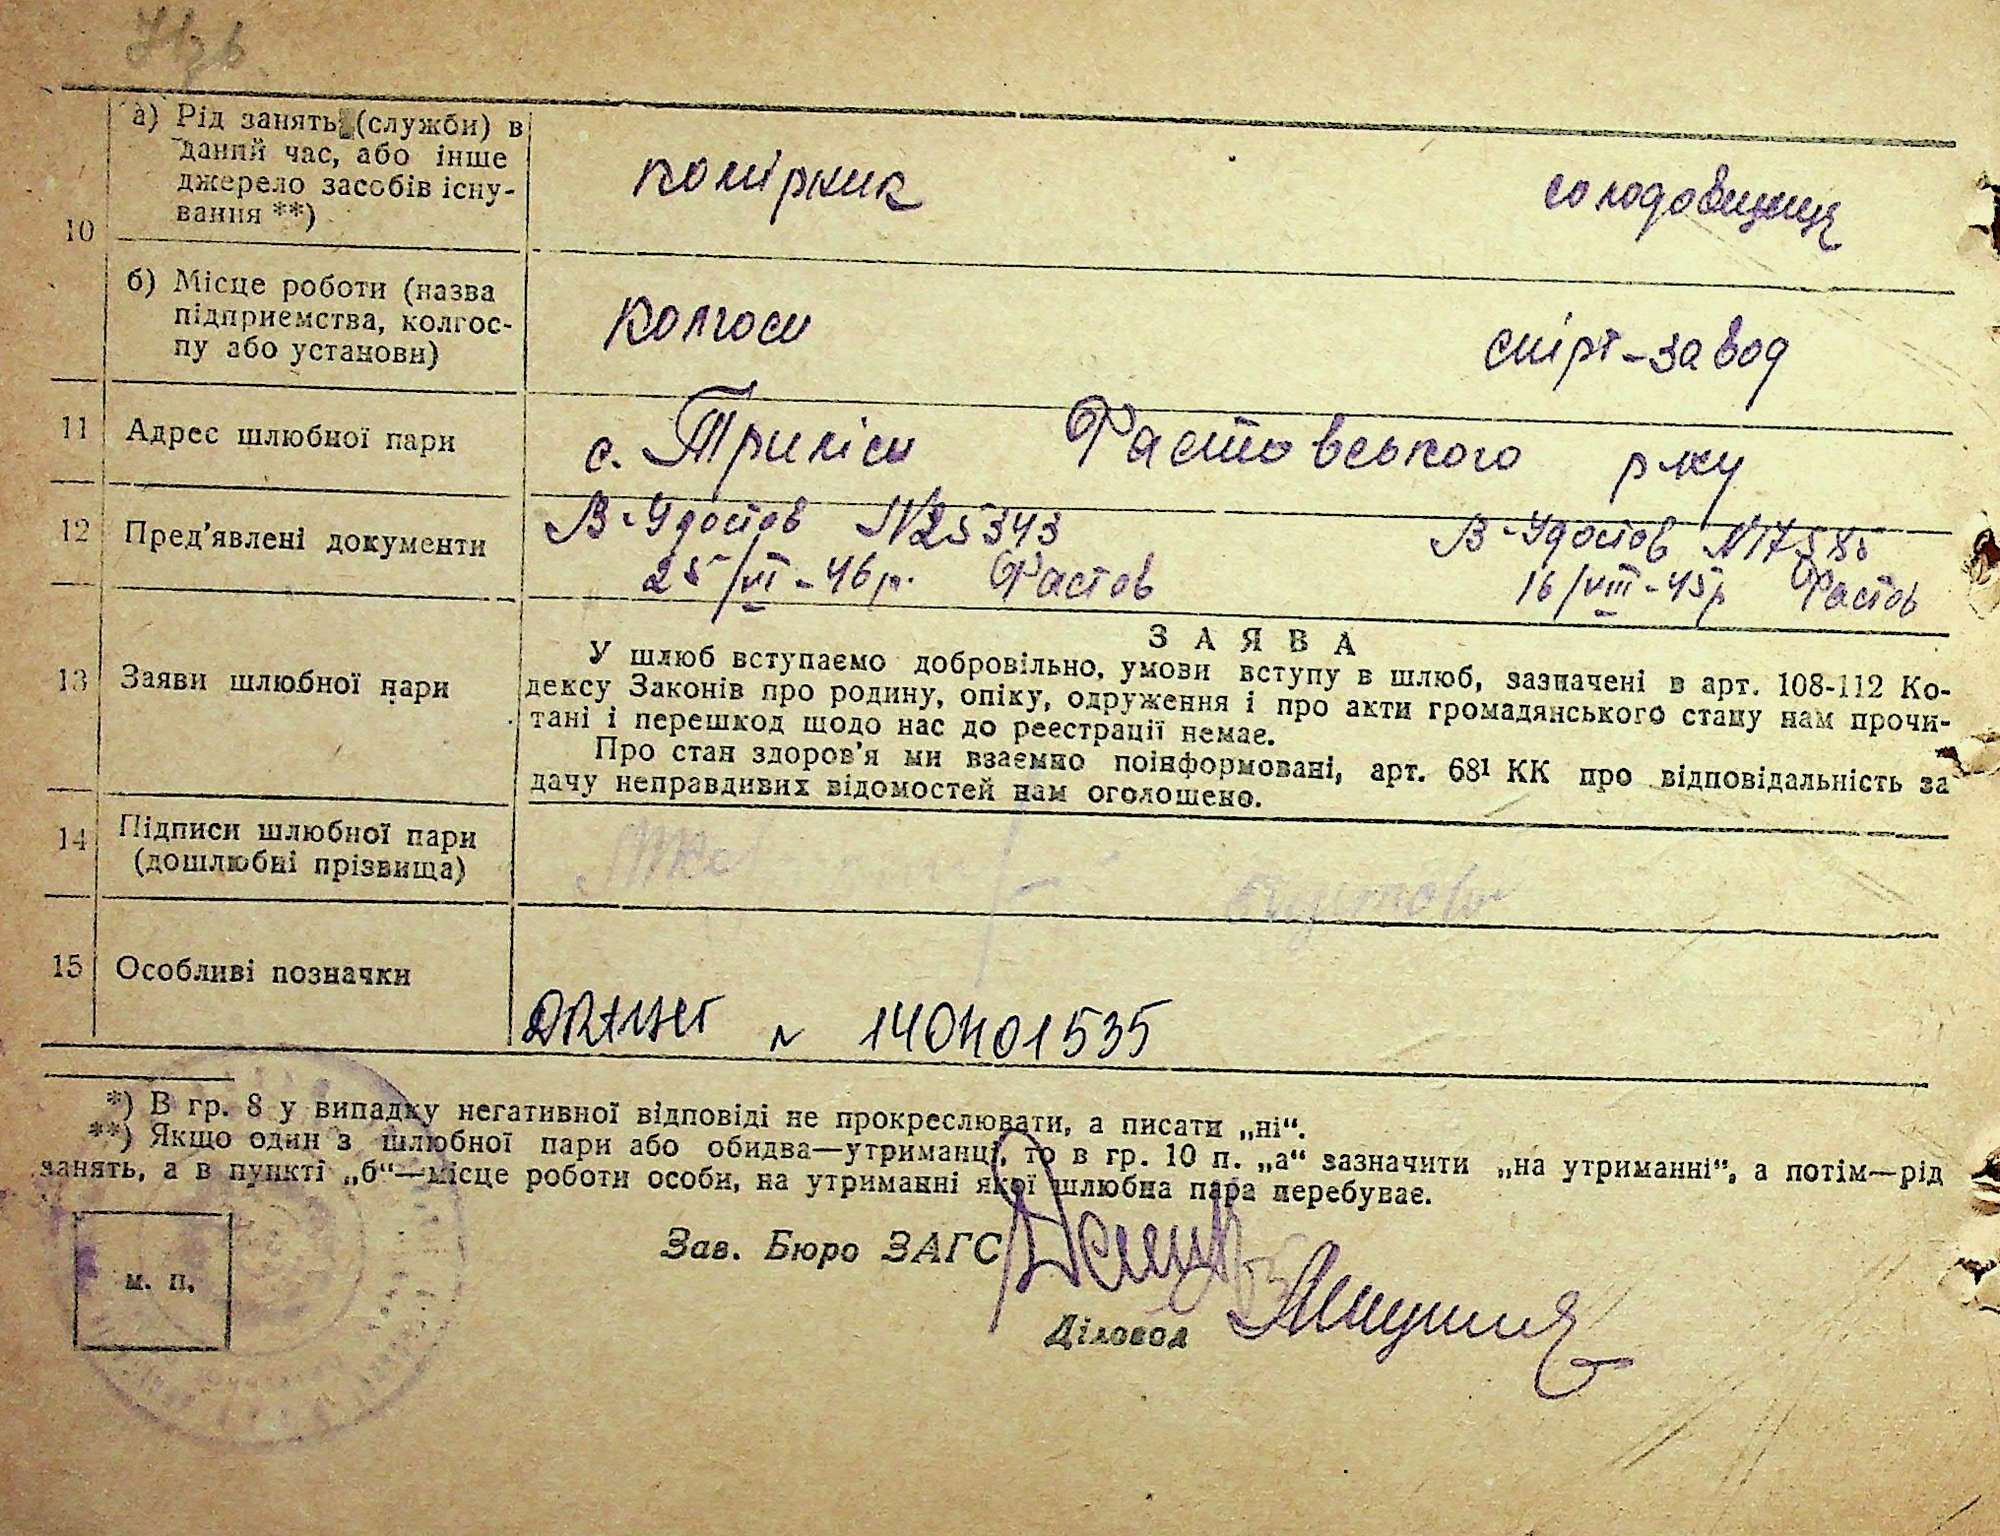 10
а) Рід занять (службн) в
даний час, або інше
джерело засобів існу-
вання **)
коміркик
солодовщиця
б) Місце роботи (назва
підприємства, колгос-
пу або установи)
Колгосп
спірт-завод
11 Адрес шлюбної пари
с. Триліси Фастовського р-ну
12 Пред'явлені документи
В-Удостов N25343
25/VI-46р. Фастов
В-Удостов N
16/VIII-45р Фастов
13 Заяви шлюбної пари
ЗАЯВА
У шлюб вступаємо добровільно, умови вступу в шлюб, зазначені в арт. 108-112 Ко-
дексу Законів про родину, опіку, одруження і про акти громадянського стану нам прочи-
тані і перешкод щодо нас до реестрації немає.
Про стан здоров'я ми взаємно поінформовані, арт. 68¹ КК про відповідальність за
дачу неправдивих відомостей нам оголошено.
14 Підписи шлюбної пари
(дошлюбні прізвища)
15 Особливі позначки
N 140401535
*) В гр. 8 у випадку негативної відповіді не прокреслювати, а писати „ні“.
**) Якщо один з шлюбної пари або обидва—утриманці, то в гр. 10 п. „а“ зазначити „на утриманні“, а потім—рід
занять, а в пункті „б“—місце роботи особи, на утриманні якої шлюбна пара перебуває.
Зав. Бюро ЗАГС
м. п.
Діловод